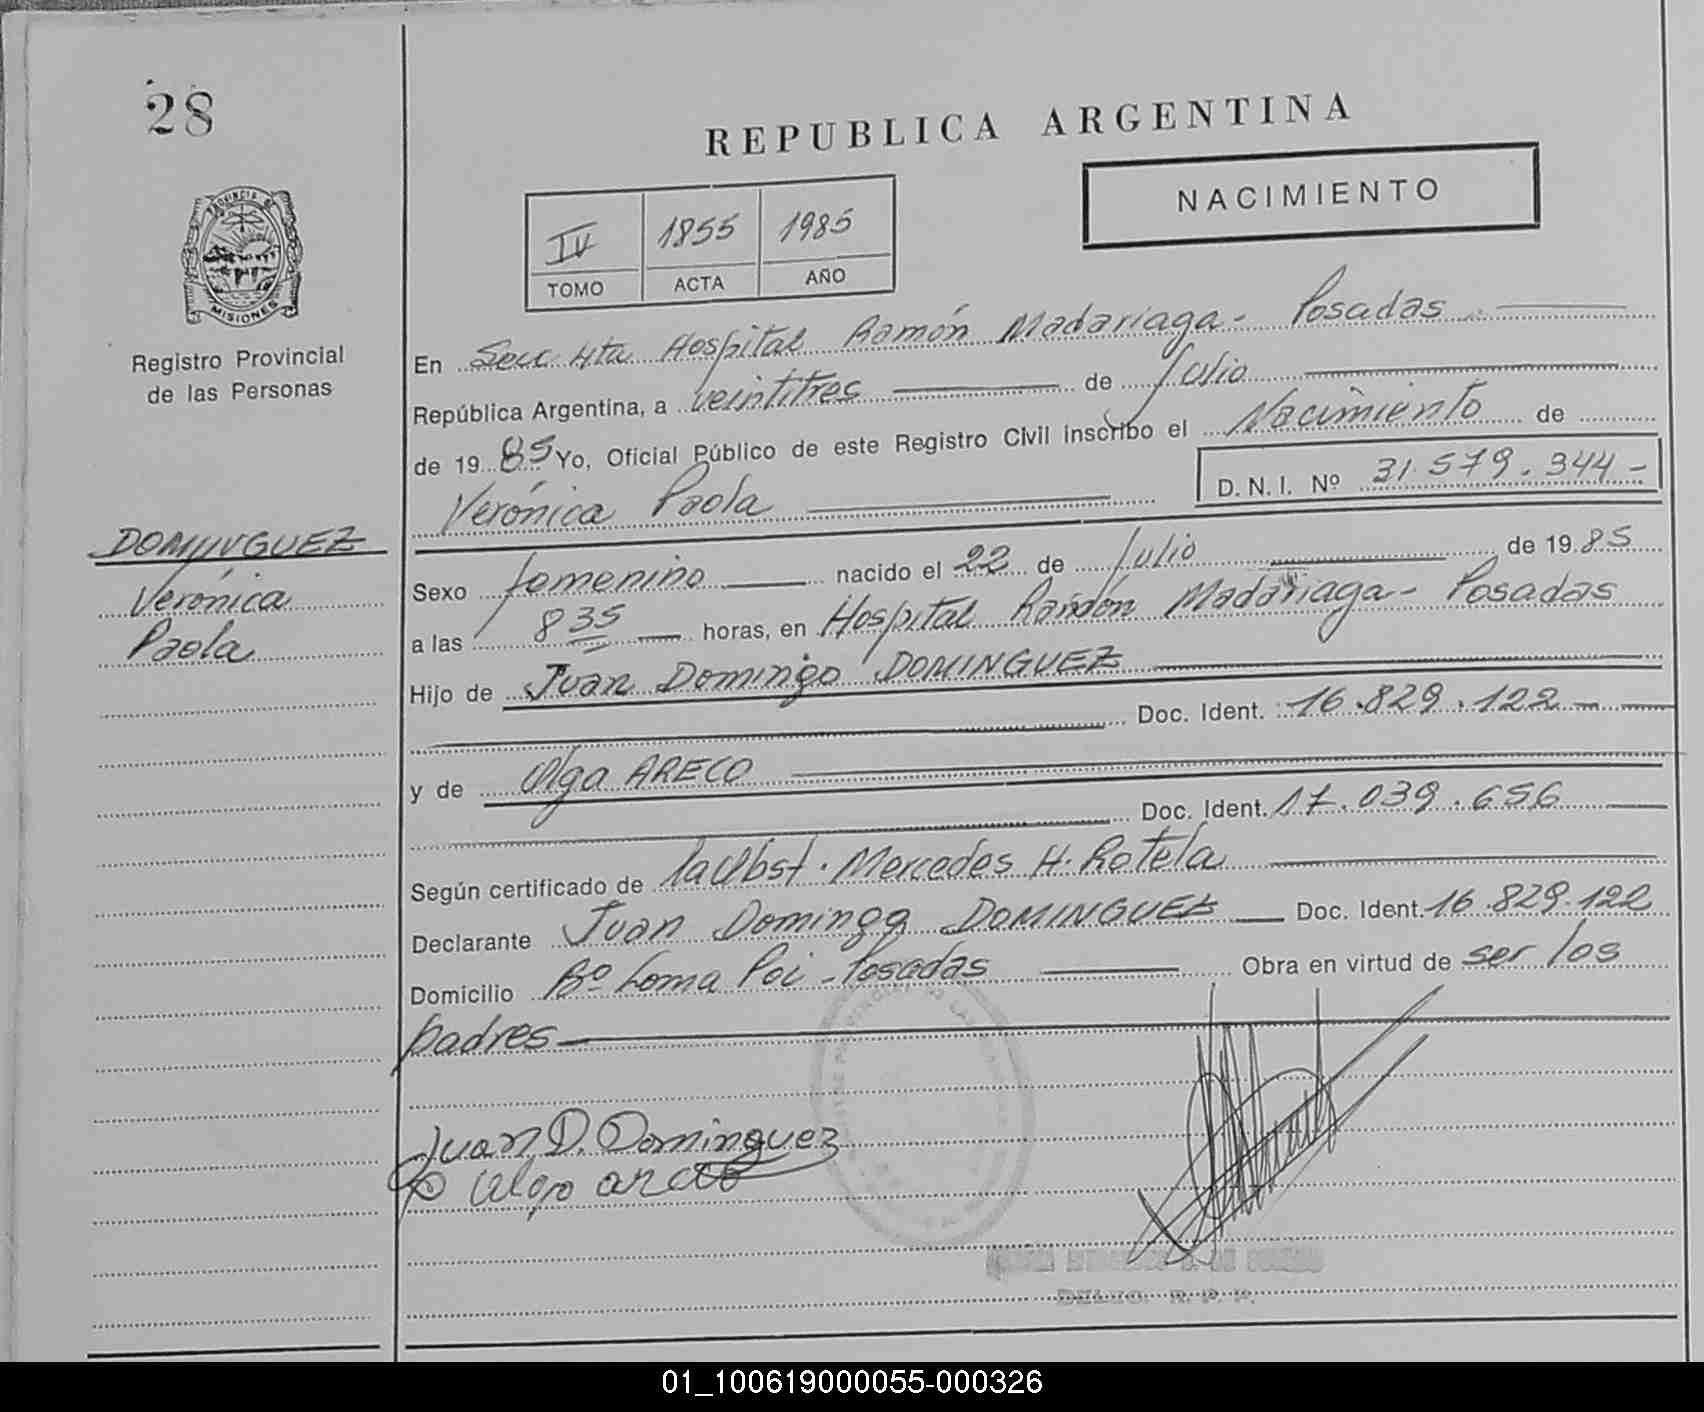 28
REPUBLICA ARGENTINA
NACIMIENTO
IV 1855 1985
TOMO ACTA AÑO
PROVINCIA DE
MISIONES
Registro Provincial
de las Personas
En Secc 4ta Hospital Ramón Madariaga - Posadas
República Argentina, a veintitres de Julio
de 1985 Yo, Oficial Público de este Registro Civil inscribo el Nacimiento de
Verónica Paola D. N. I. Nº 31.579.344-
DOMINGUEZ
Verónica
Paola
Sexo femenino nacido el 22 de Julio de 1985
a las 8 35 horas, en Hospital Ramón Madariaga - Posadas
Hijo de Juan Domingo DOMINGUEZ
Doc. Ident. 16.829.122
y de Olga ARECO
Doc. Ident. 17.039.656
Según certificado de la Obst. Mercedes H. Rotela
Declarante Juan Domingo DOMINGUEZ Doc. Ident. 16.829.122
Domicilio Bº Loma Poi - Posadas Obra en virtud de ser los
padres
Juan D. Dominguez
Olga areco
DELEG. R. P. P.
01_100619000055-000326